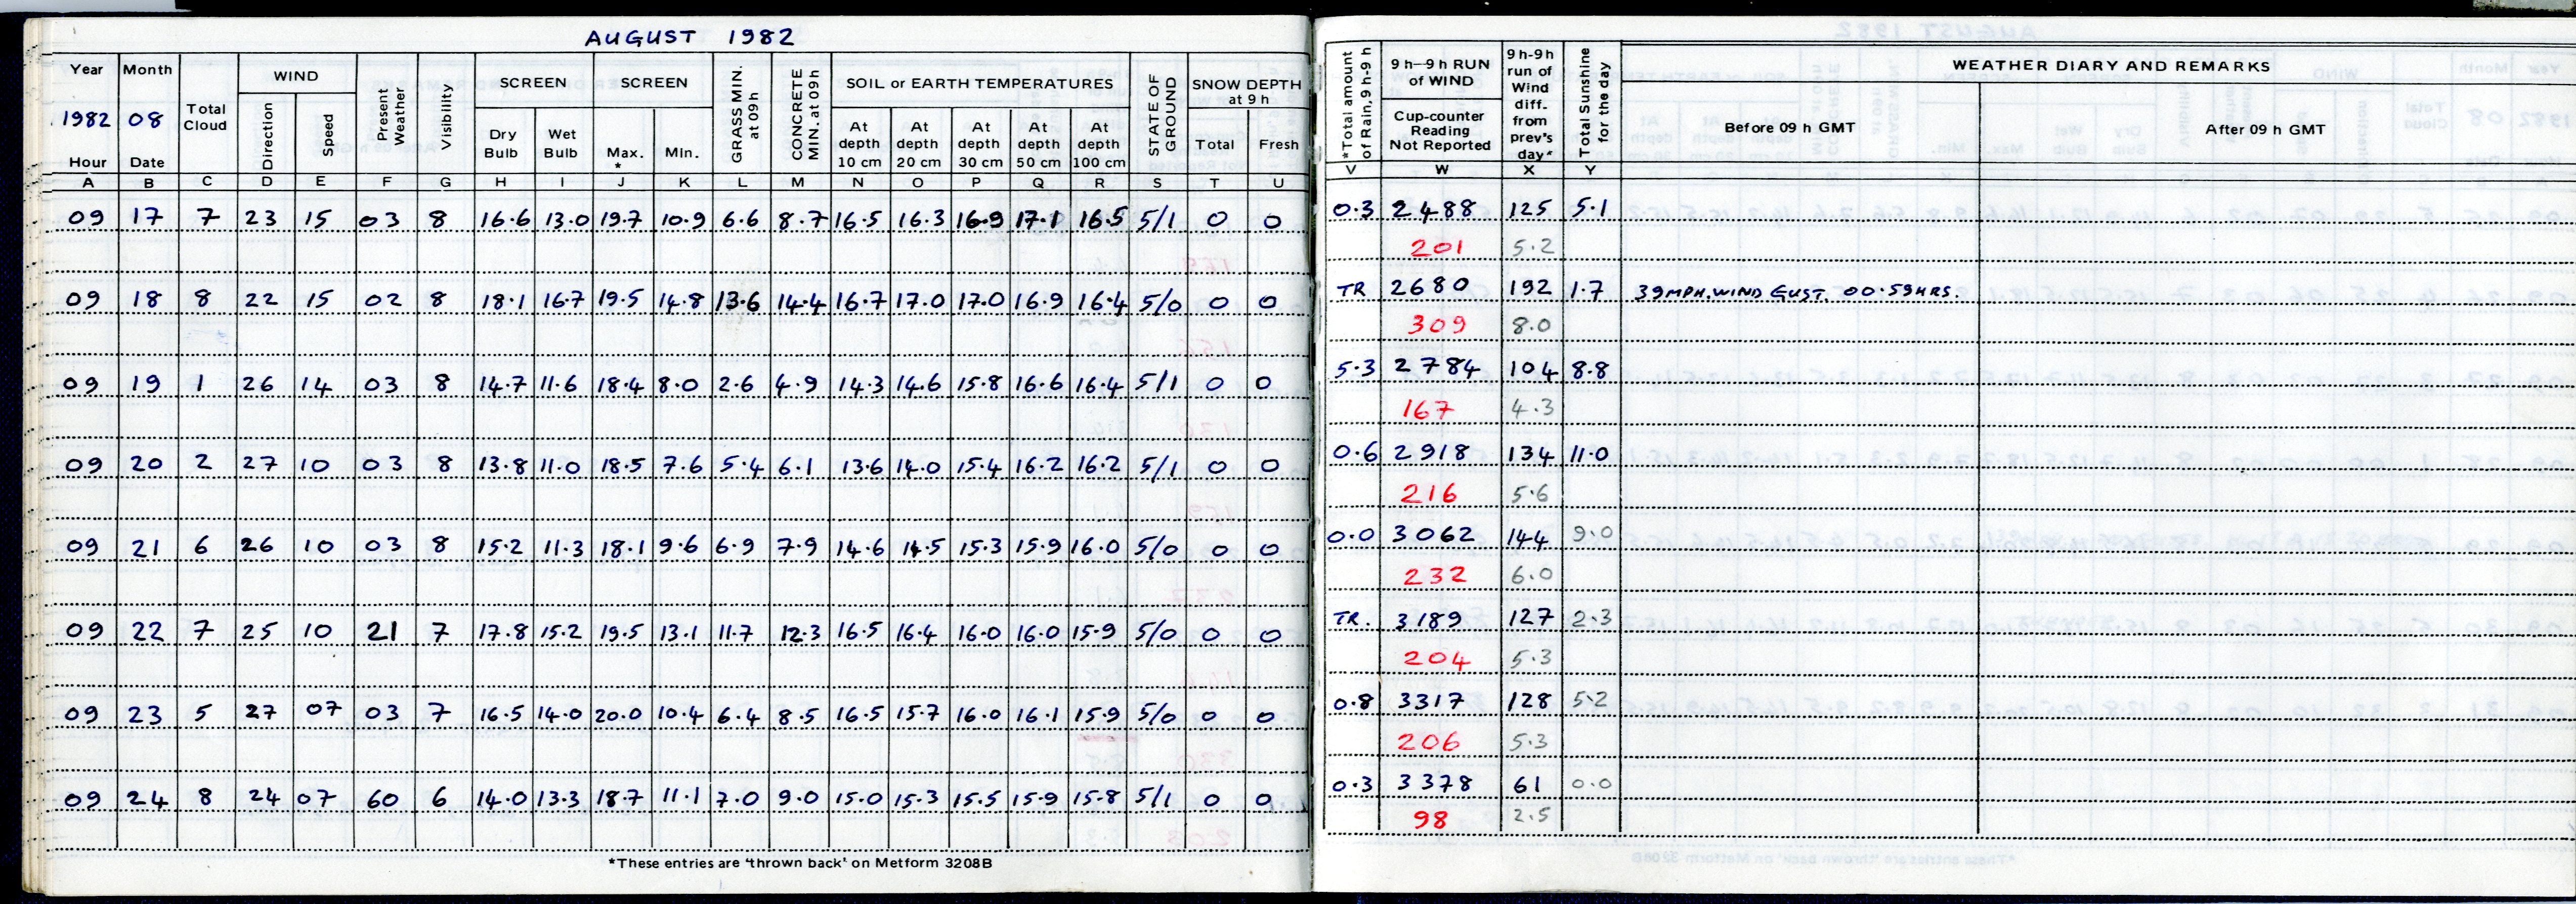 AUGUST 1982
Year Month Total Cloud WIND Direction Speed Present Weather Visibility SCREEN Dry Bulb Wet Bulb SCREEN Max. * Min. GRASS MIN. at 09h CONCRETE MIN. at 09h SOIL or EARTH TEMPERATURES At depth 10 cm At depth 20 cm At depth 30 cm At depth 50 cm At depth 100 cm STATE OF GROUND SNOW DEPTH at 9 h Total Fresh
1982 08
Hour Date
A B C D E F G H I J K L M N O P Q R S T U
09 17 7 23 15 03 8 16.6 13.0 19.7 10.9 6.6 8.7 16.5 16.3 16.9 17.1 16.5 5/1 0 0
09 18 8 22 15 02 8 18.1 16.7 19.5 14.8 13.6 14.4 16.7 17.0 17.0 16.9 16.4 5/0 0 0
09 19 1 26 14 03 8 14.7 11.6 18.4 8.0 2.6 4.9 14.3 14.6 15.8 16.6 16.4 5/1 0 0
09 20 2 27 10 03 8 13.8 11.0 18.5 7.6 5.4 6.1 13.6 14.0 15.4 16.2 16.2 5/1 0 0
09 21 6 26 10 03 8 15.2 11.3 18.1 9.6 6.9 7.9 14.6 14.5 15.3 15.9 16.0 5/0 0 0
09 22 7 25 10 21 7 17.8 15.2 19.5 13.1 11.7 12.3 16.5 16.4 16.0 16.0 15.9 5/0 0 0
09 23 5 27 07 03 7 16.5 14.0 20.0 10.4 6.4 8.5 16.5 15.7 16.0 16.1 15.9 5/0 0 0
09 24 8 24 07 60 6 14.0 13.3 18.7 11.1 7.0 9.0 15.0 15.3 15.5 15.9 15.8 5/1 0 0
*These entries are 'thrown back' on Metform 3208B
*Total amount of Rain, 9 h-9 h 9 h-9 h RUN of WIND Cup-counter Reading Not Reported 9 h-9 h run of Wind diff. from prev's day* Total Sunshine for the day WEATHER DIARY AND REMARKS
Before 09 h GMT After 09 h GMT
V W X Y
0.3 2488 125 5.1
201 5.2
TR 2680 192 1.7 39MPH.WIND GUST. 00.59HRS.
309 8.0
5.3 2784 104 8.8
167 4.3
0.6 2918 134 11.0
216 5.6
0.0 3062 144 9.0
232 6.0
TR. 3189 127 2.3
204 5.3
0.8 3317 128 5.2
206 5.3
0.3 3378 61 0.0
98 2.5